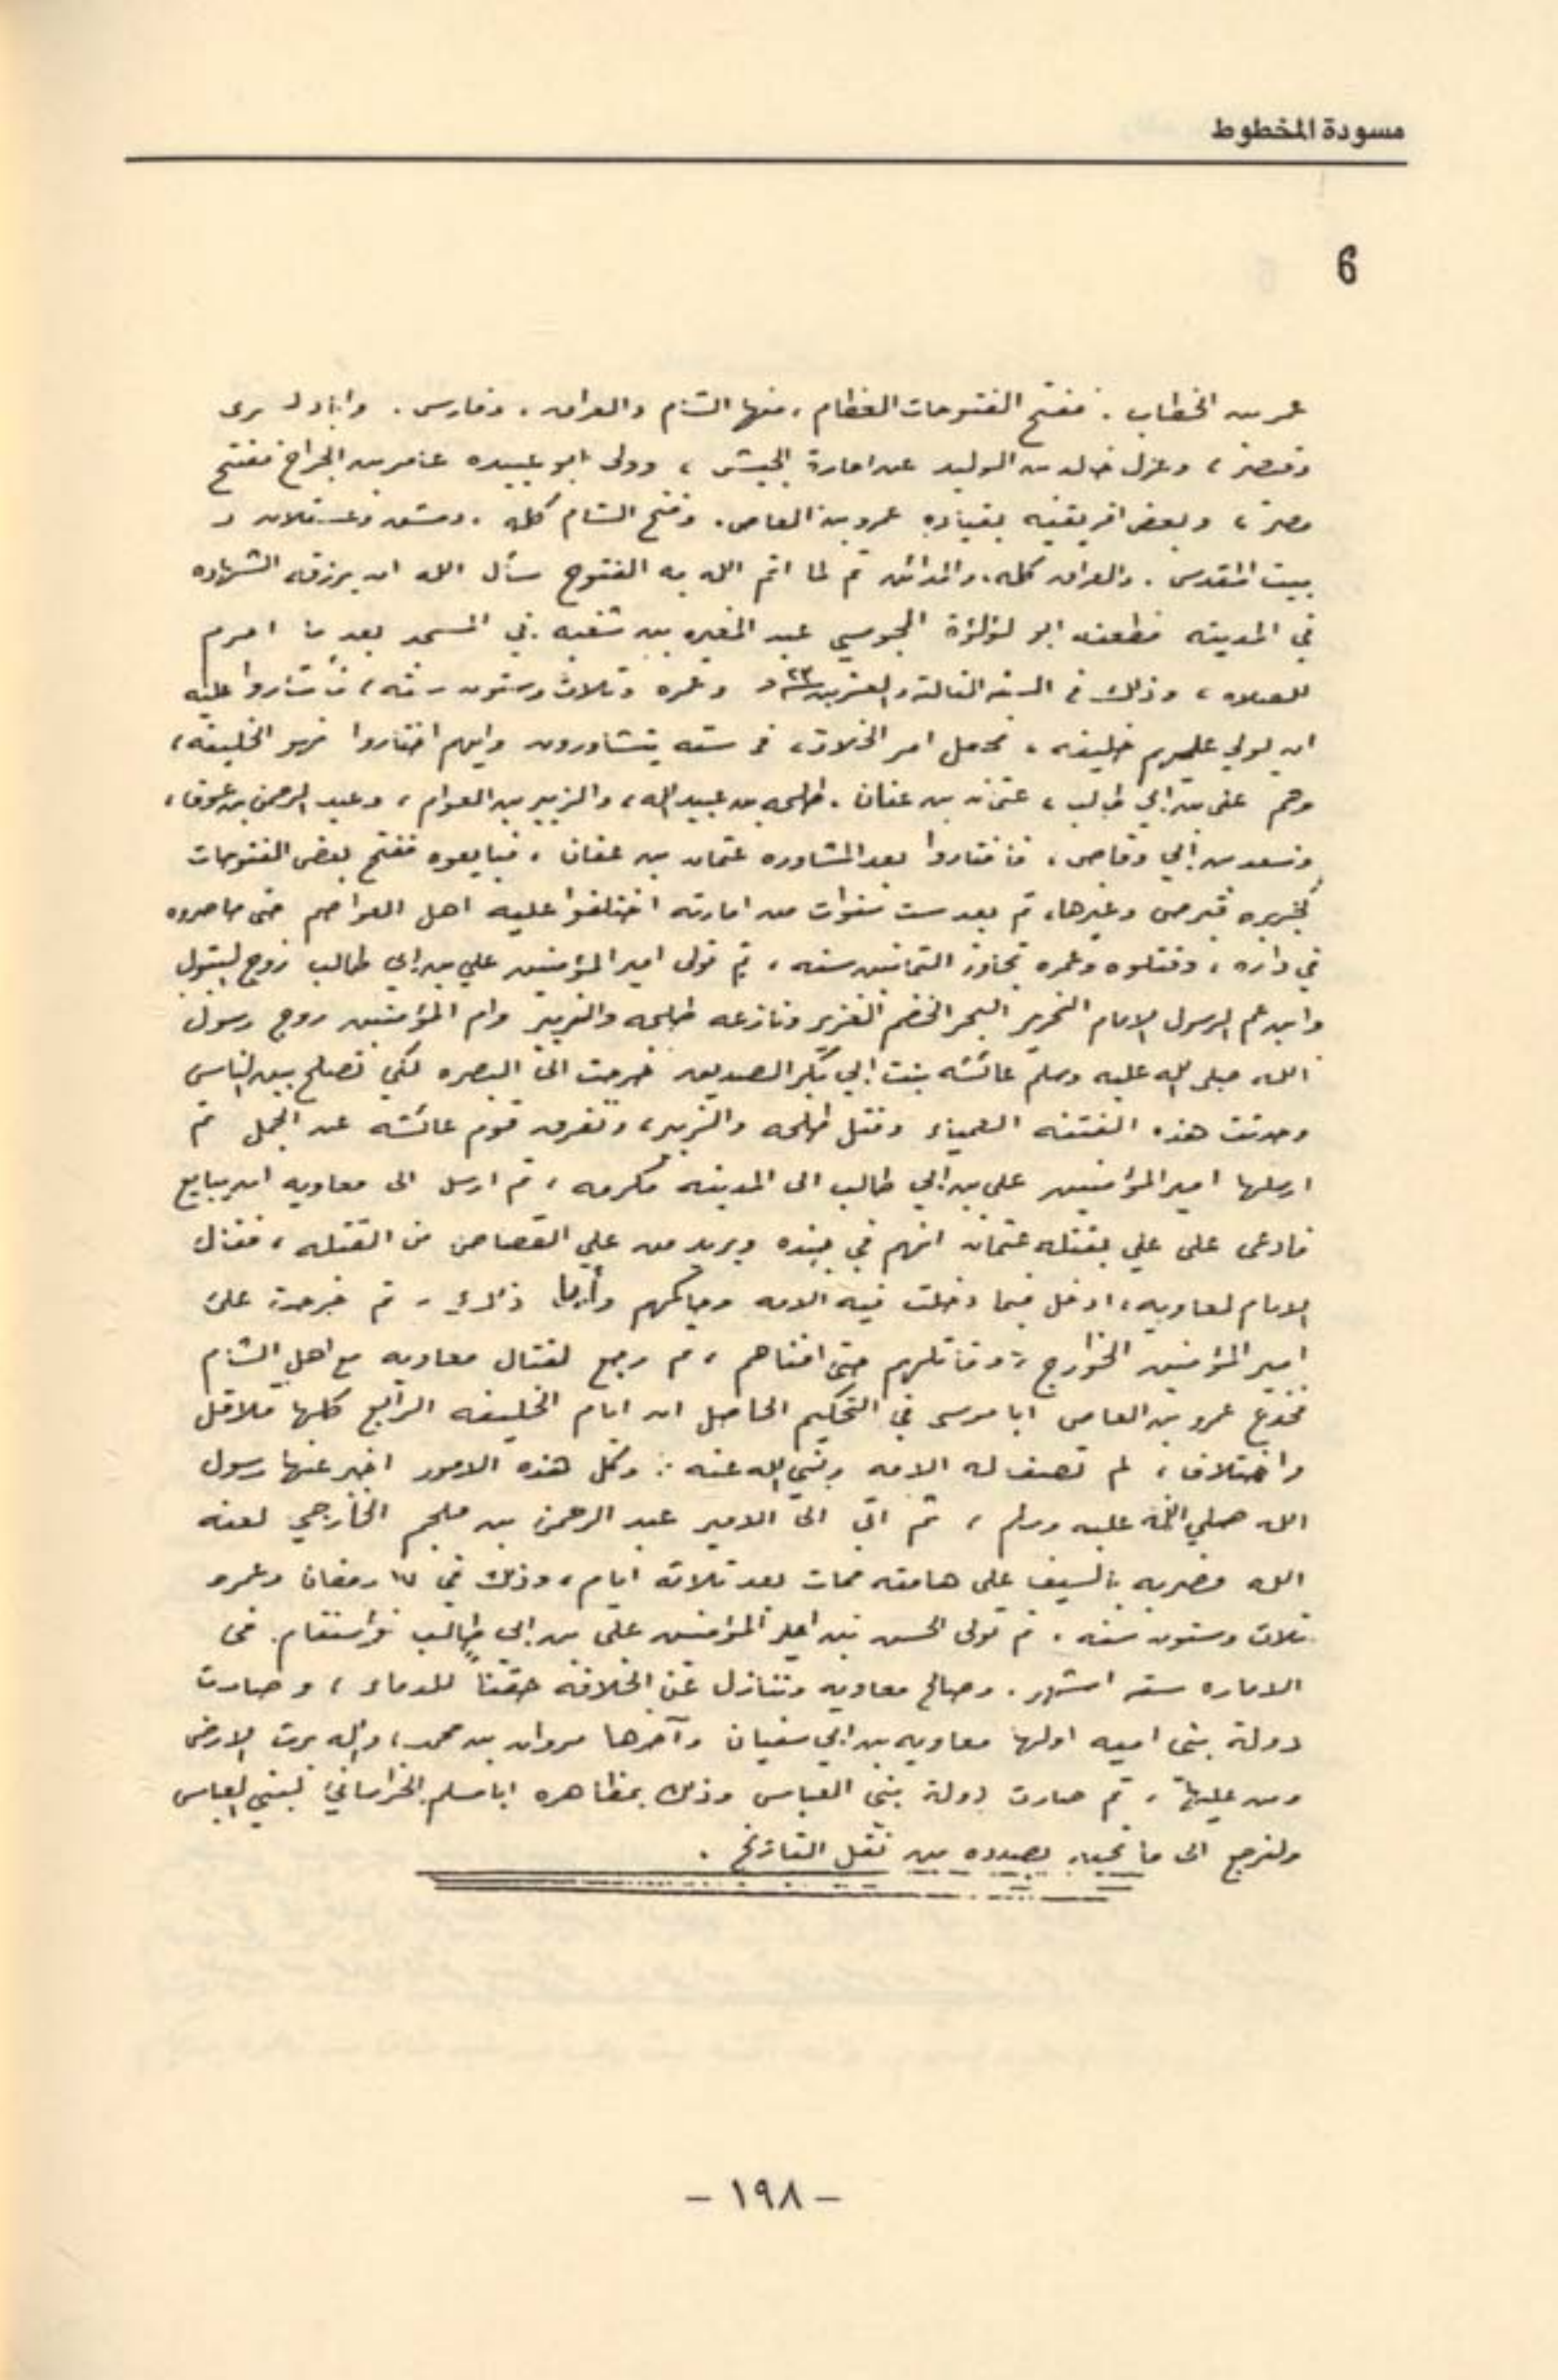 مسودة المخطوط
6
عمر بن الخطاب . ففتح الفتوحات العظام ، منها الشام والعراق . وفارس . واباد كسرى
وقيصر ، وعزل خالد بن الوليد عن امارة الجيش ، وولى ابو عبيده عامر بن الجراح ففتح
مصر ، وبعض افريقيه بقياده عمرو بن العاص . وفتح الشام كله . دمشق وعسقلان و
بيت المقدس . والعراق كله . والمدائن ثم لما اتم الله به الفتوح سأل الله ان يرزقه الشهاده
في المدينه فطعنه ابو لؤلؤة المجوسي عبد المغيره بن شعبه . في المسجد بعد ما احرم
للصلاه ، وذلك في السنه الثالثه والعشرين ٢٣ وعمره ثلاث وستون سنه ، فأشاروا عليه
ان يولي عليهم خليفه ، فجعل امر الخلافه في سته يتشاورون وايهم اختاروا فهو الخليفه ،
وهم علي بن ابي طالب ، عثمان بن عفان . طلحه بن عبيد الله ، والزبير بن العوام ، وعبد الرحمن بن عوف ،
وسعد بن ابي وقاص ، فأختاروا بعد المشاوره عثمان بن عفان ، فبايعوه ففتح بعض الفتوحات
كجزيره قبرص وغيرها ، ثم بعد ست سنوات من امارته اختلفوا عليه اهل العواصم حتى حاصروه
في داره ، وقتلوه وعمره تجاوز الثمانين سنه ، ثم تولى امير المؤمنين علي بن ابي طالب زوج البتول
وابن عم الرسول الامام النحرير البحر الخضم الغزير ونازعه طلحه والزبير وام المؤمنين زوج رسول
الله صلى الله عليه وسلم عائشه بنت ابي بكر الصديق خرجت الى البصره لكي تصلح بين الناس
وحدثت هذه الفتنه العمياء وقتل طلحه والزبير ، وتفرق قوم عائشه عن الجمل ثم
ارسلها امير المؤمنين علي بن ابي طالب الى المدينه مكرمه ، ثم ارسل الى معاويه ان يبايع
فادعى على علي بقتله عثمان انهم في جنده ويريد من علي القصاص من القتله ، فقال
الامام لمعاويه ، ادخل فيما دخلت فيه الامه وحاكمهم ذلك . ثم خرجت على
امير المؤمنين الخوارج ، وقاتلهم حتى افناهم ، ثم رجع لقتال معاويه مع اهل الشام
فخدع عمرو بن العاص ابا موسى في التحكيم الحاصل ان ايام الخليفه الرابع كلها قلاقل
واختلاف ، لم تصف له الامه رضي الله عنه . وكل هذه الامور اخبر عنها رسول
الله صلي الله عليه وسلم ، ثم اتى الى الامير عبد الرحمن بن ملجم الخارجي لعنه
الله فضربه بالسيف على هامته فمات بعد ثلاثه ايام ، وذلك في ١٧ رمضان وعمره
ثلاث وستون سنه . ثم تولى الحسن بن امير المؤمنين علي بن ابي طالب في
الاماره سته اشهر . وصالح معاويه وتنازل عن الخلافه حقناً للدماء ، وصارت
دولة بني اميه اولها معاويه بن ابي سفيان وآخرها مروان بن محمد ، والله يرث الارض
ومن عليها ، ثم صارت دولة بني العباس وذلك بمظاهره ابا مسلم الخراساني لبني العباس
ولنرجع الى ما نحن بصدده من نقل التاريخ .
– ١٩٨ –